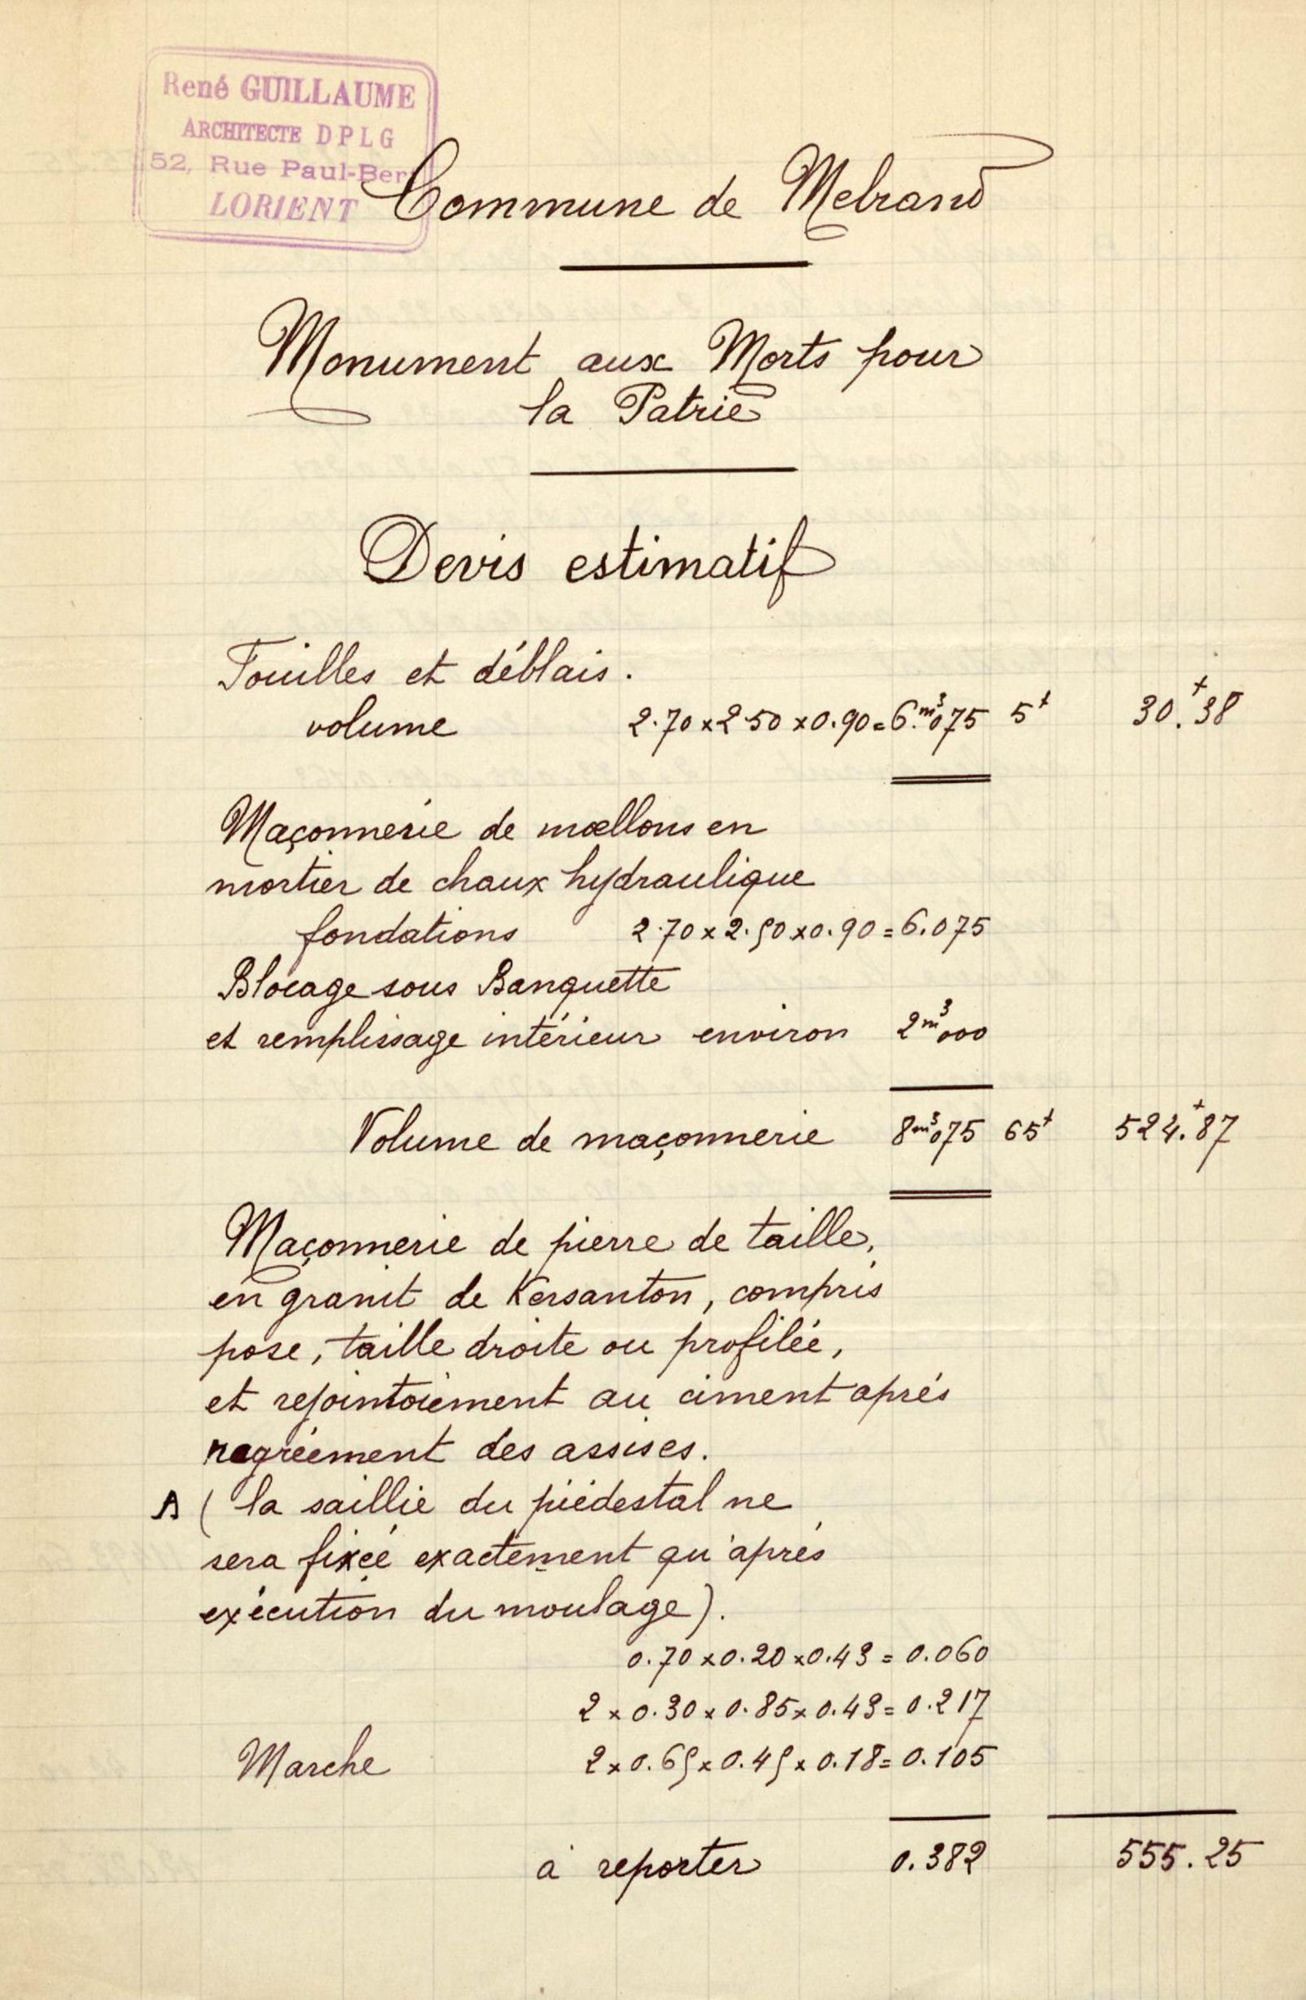 René GUILLAUME
ARCHITECTE DPLG
52, Rue Paul-Ber
LORIENT
Commune de Melrand
Monument aux Morts pour
la Patrie
Devis estimatif
Fouilles et déblais.
volume 2.70 x 2.50 x 0.90 = 6.m³075 5f 30.f38
Maçonnerie de mœllons en
mortier de chaux hydraulique
fondations 2.70 x 2.50 x 0.90 = 6.075
Blocage sous Banquette
et remplissage intérieur environ 2m³000
Volume de maçonnerie 8m³075 65f 524.f87
Maçonnerie de pierre de taille,
en granit de Kersanton, compris
pose, taille droite ou profilée,
et rejointoiement au ciment après
ragréement des assises.
A (la saillie du piédestal ne
sera fixée exactement qu'après
exécution du moulage).
0.70 x 0.20 x 0.43 = 0.060
2 x 0.30 x 0.85 x 0.43 = 0.217
Marche 2 x 0.65 x 0.45 x 0.18 = 0.105
à reporter 0.382 555.25